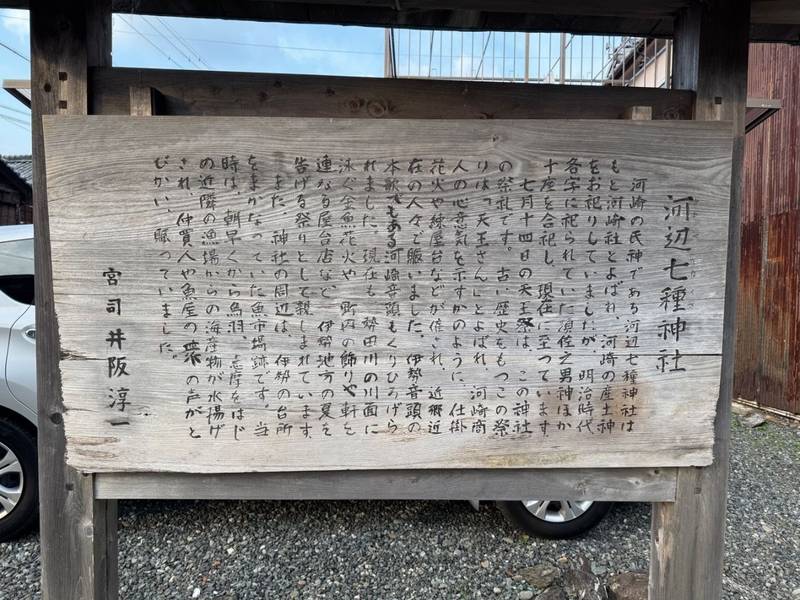 河辺七種神社
河崎の氏神である河辺七種神社は
もと河崎社とよばれ、河崎の産土神
をお祀りしていましたが、明治時代
各字に祀られていた須佐之男神ほか
十座を合祀し、現在に至っています。
七月十四日の天王祭は、この神社
の祭礼です。古い歴史をもつこの祭
りは「天王さん」とよばれ、河崎商
人の心意気を示すかのように、仕掛
花火や練屋台などが催され、近郷近
在の人々で賑いました。伊勢音頭の
本歌でもある河崎音頭もくりひろげら
れました。現在も、勢田川の川面に
泳ぐ金魚花火や、町内の飾りや軒を
連なる屋台店など、伊勢地方の夏を
告げる祭りとして親しまれています。
また、神社の周辺は、伊勢の台所
をまかなっていた魚市場跡です。当
時は、朝早くから鳥羽、志摩をはじ
め近隣の漁場からの海産物が水揚げ
され、仲買人や魚屋の衆の声がと
びかい、賑っていました。
宮司 井阪 淳一